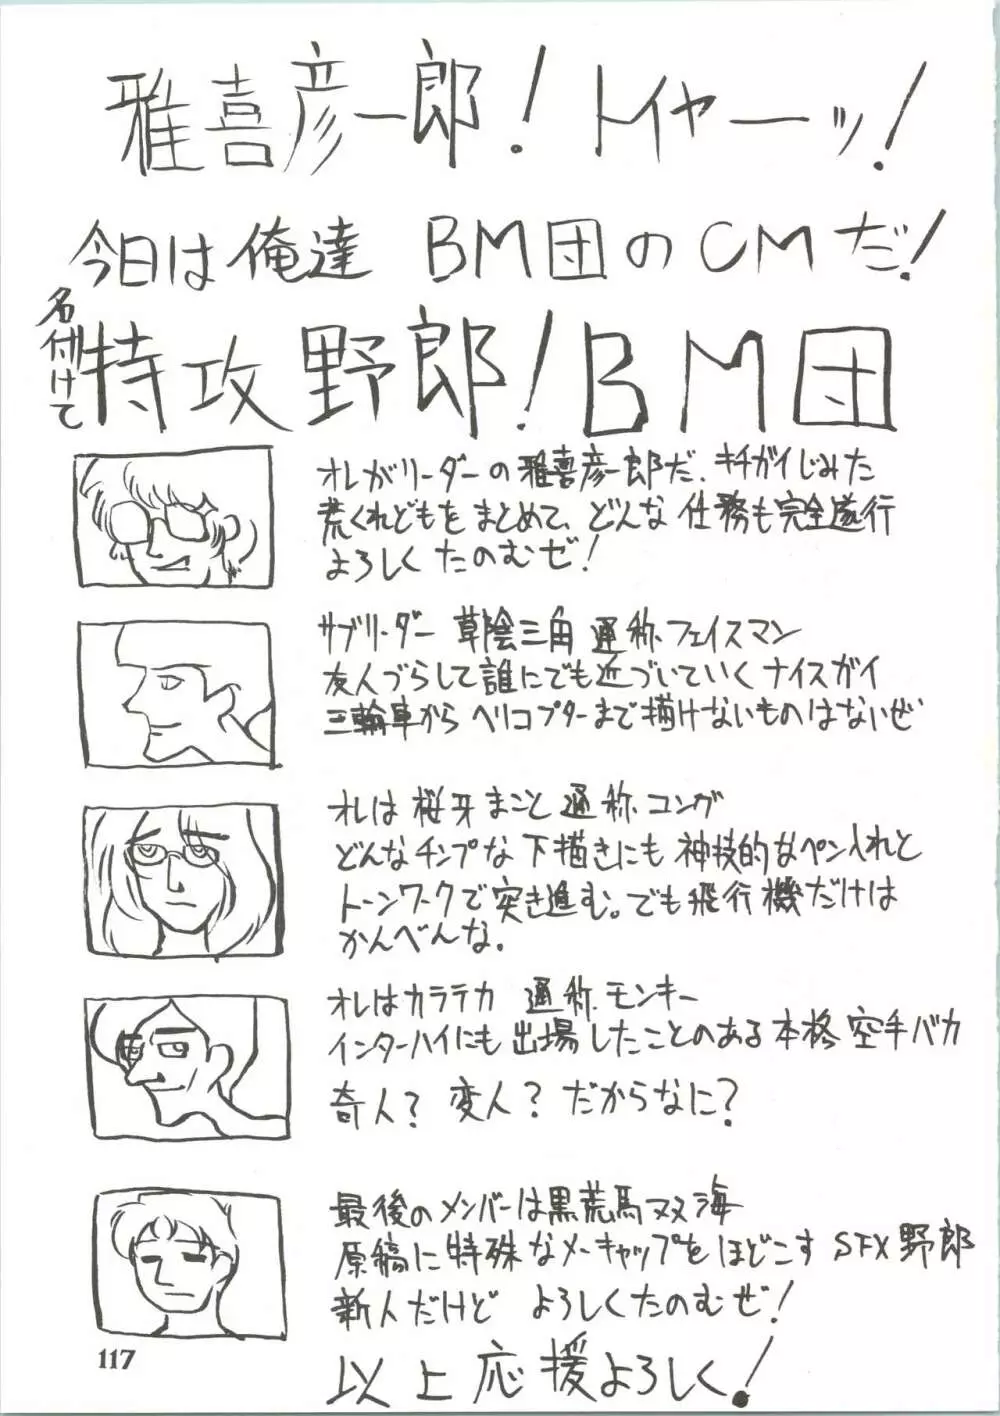 雅喜彦一郎！トイヤーッ！
今日は俺達 BM団のCMだ！
名付けて
特攻野郎！BM団
オレがリーダーの雅喜彦一郎だ、キチガイじみた
荒くれどもをまとめて、どんな仕務も完全遂行
よろしくたのむぜ！
サブリーダー 草陰三角 通称フェイスマン
友人づらして誰にでも近づいていくナイスガイ
三輪車からヘリコプターまで描けないものはないぜ
オレは桜牙まこと 通称コング
どんなチンプな下描きにも神技的なペン入れと
トーンワークで突き進む。でも飛行機だけは
かんべんな。
オレはカラテカ 通称モンキー
インターハイにも出場したことのある本格空手バカ
奇人？変人？だからなに？
最後のメンバーは黒荒馬双海
原稿に特殊なメーキャップをほどこすSFX野郎
新人だけど よろしくたのむぜ！
以上応援よろしく！
117